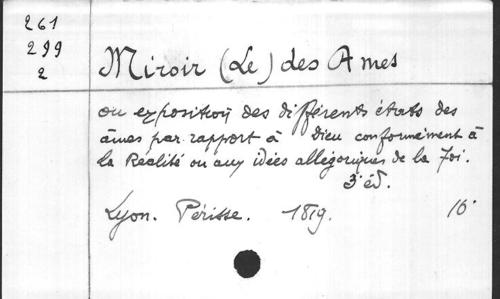 261
299
2
Miroir (Le) des Ames
ou exposition des différents états des
âmes par rapport à Dieu conformément à
la Réalité ou aux idées allégoriques de la Foi.
3e éd.
Lyon. Périsse. 1819. 16°